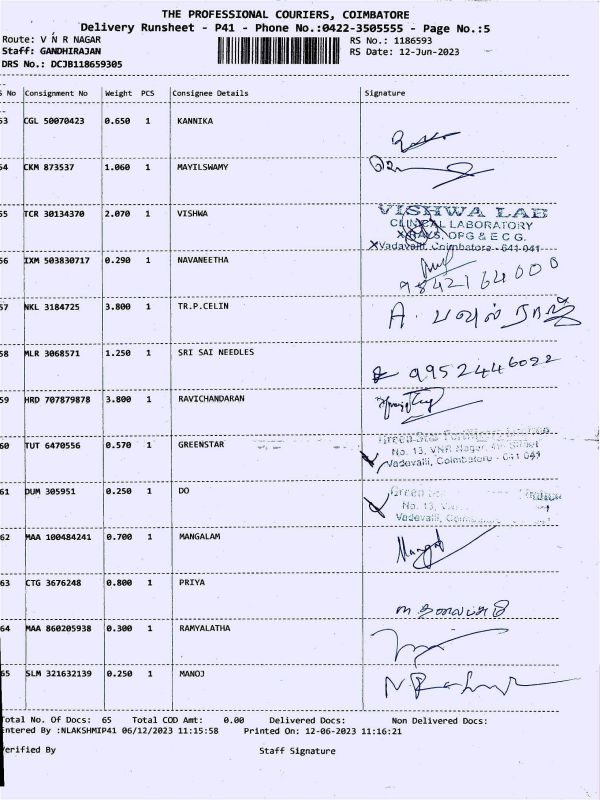 THE PROFESSIONAL COURIERS, COIMBATORE
Delivery Runsheet - P41 - Phone No.:0422-3505555 - Page No.:5
Route: V N R NAGAR RS No.: 1186593
Staff: GANDHIRAJAN RS Date: 12-Jun-2023
DRS No.: DCJB118659305
No Consignment No Weight PCS Consignee Details Signature
53 CGL 50070423 0.650 1 KANNIKA
54 CKM 873537 1.060 1 MAYILSWAMY
55 TCR 30134370 2.070 1 VISHWA VISHWA LAB
CLINICAL LABORATORY
X-RAYS, OPG & E C G.
Vadavalli, Coimbatore - 641 041
56 IXM 503830717 0.290 1 NAVANEETHA
9842164000
57 NKL 3184725 3.800 1 TR.P.CELIN A. பவுல் ராஜ்
58 MLR 3068571 1.250 1 SRI SAI NEEDLES 9952446022
59 HRD 707879878 3.800 1 RAVICHANDARAN
60 TUT 6470556 0.570 1 GREENSTAR Green Star
No. 13, VNR Nagar,
Vadavalli, Coimbatore - 641 041
61 DUM 305951 0.250 1 DO Green
No. 13,
Vadavalli,
62 MAA 100484241 0.700 1 MANGALAM
63 CTG 3676248 0.800 1 PRIYA
64 MAA 860205938 0.300 1 RAMYALATHA
65 SLM 321632139 0.250 1 MANOJ
Total No. Of Docs: 65 Total COD Amt: 0.00 Delivered Docs: Non Delivered Docs:
Entered By :NLAKSHMIP41 06/12/2023 11:15:58 Printed On: 12-06-2023 11:16:21
Verified By Staff Signature